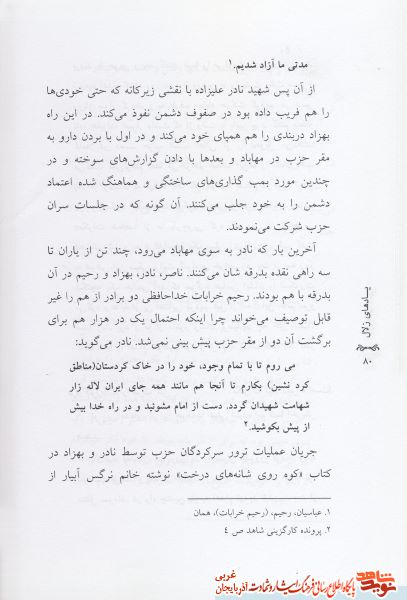 مدتی ما آزاد شدیم.۱
از آن پس شهید نادر علیزاده با نقشی زیرکانه که حتی خودی‌ها
را هم فریب داده بود در صفوف دشمن نفوذ می‌کند. در این راه
بهزاد دربندی را هم همپای خود می‌کند و در اول با بردن دارو به
مقر حزب در مهاباد و بعدها با دادن گزارش‌های سوخته و در
چندین مورد بمب گذاری‌های ساختگی و هماهنگ شده اعتماد
دشمن را به خود جلب می‌کنند. آن گونه که در جلسات سران
حزب شرکت می‌نمودند.
آخرین بار که نادر به سوی مهاباد می‌رود، چند تن از یاران تا
سه راهی نقده بدرقه شان می‌کنند. ناصر، نادر، بهزاد و رحیم در آن
بدرقه با هم بودند. رحیم خرابات خداحافظی دو برادر از هم را غیر
قابل توصیف می‌خواند چرا اینکه احتمال یک در هزار هم برای
برگشت آن دو از مقر حزب پیش بینی نمی‌شد. نادر می‌گوید:
می روم تا با تمام وجود، خود را در خاک کردستان(مناطق
کرد نشین) بکارم تا آنجا هم مانند همه جای ایران لاله زار
شهامت شهیدان گردد. دست از امام مشوئید و در راه خدا بیش
از پیش بکوشید.۲
جریان عملیات ترور سرکردگان حزب توسط نادر و بهزاد در
کتاب «کوه روی شانه‌های درخت» نوشته خانم نرگس آبیار از
۱. عباسیان، رحیم، (رحیم خرابات)، همان
۲. پرونده کارگزینی شاهد ص ٤
یادهای زلال
۸۰
نوید شاهد
پایگاه اطلاع رسانی فرهنگ ایثار و شهادت آذربایجان غربی